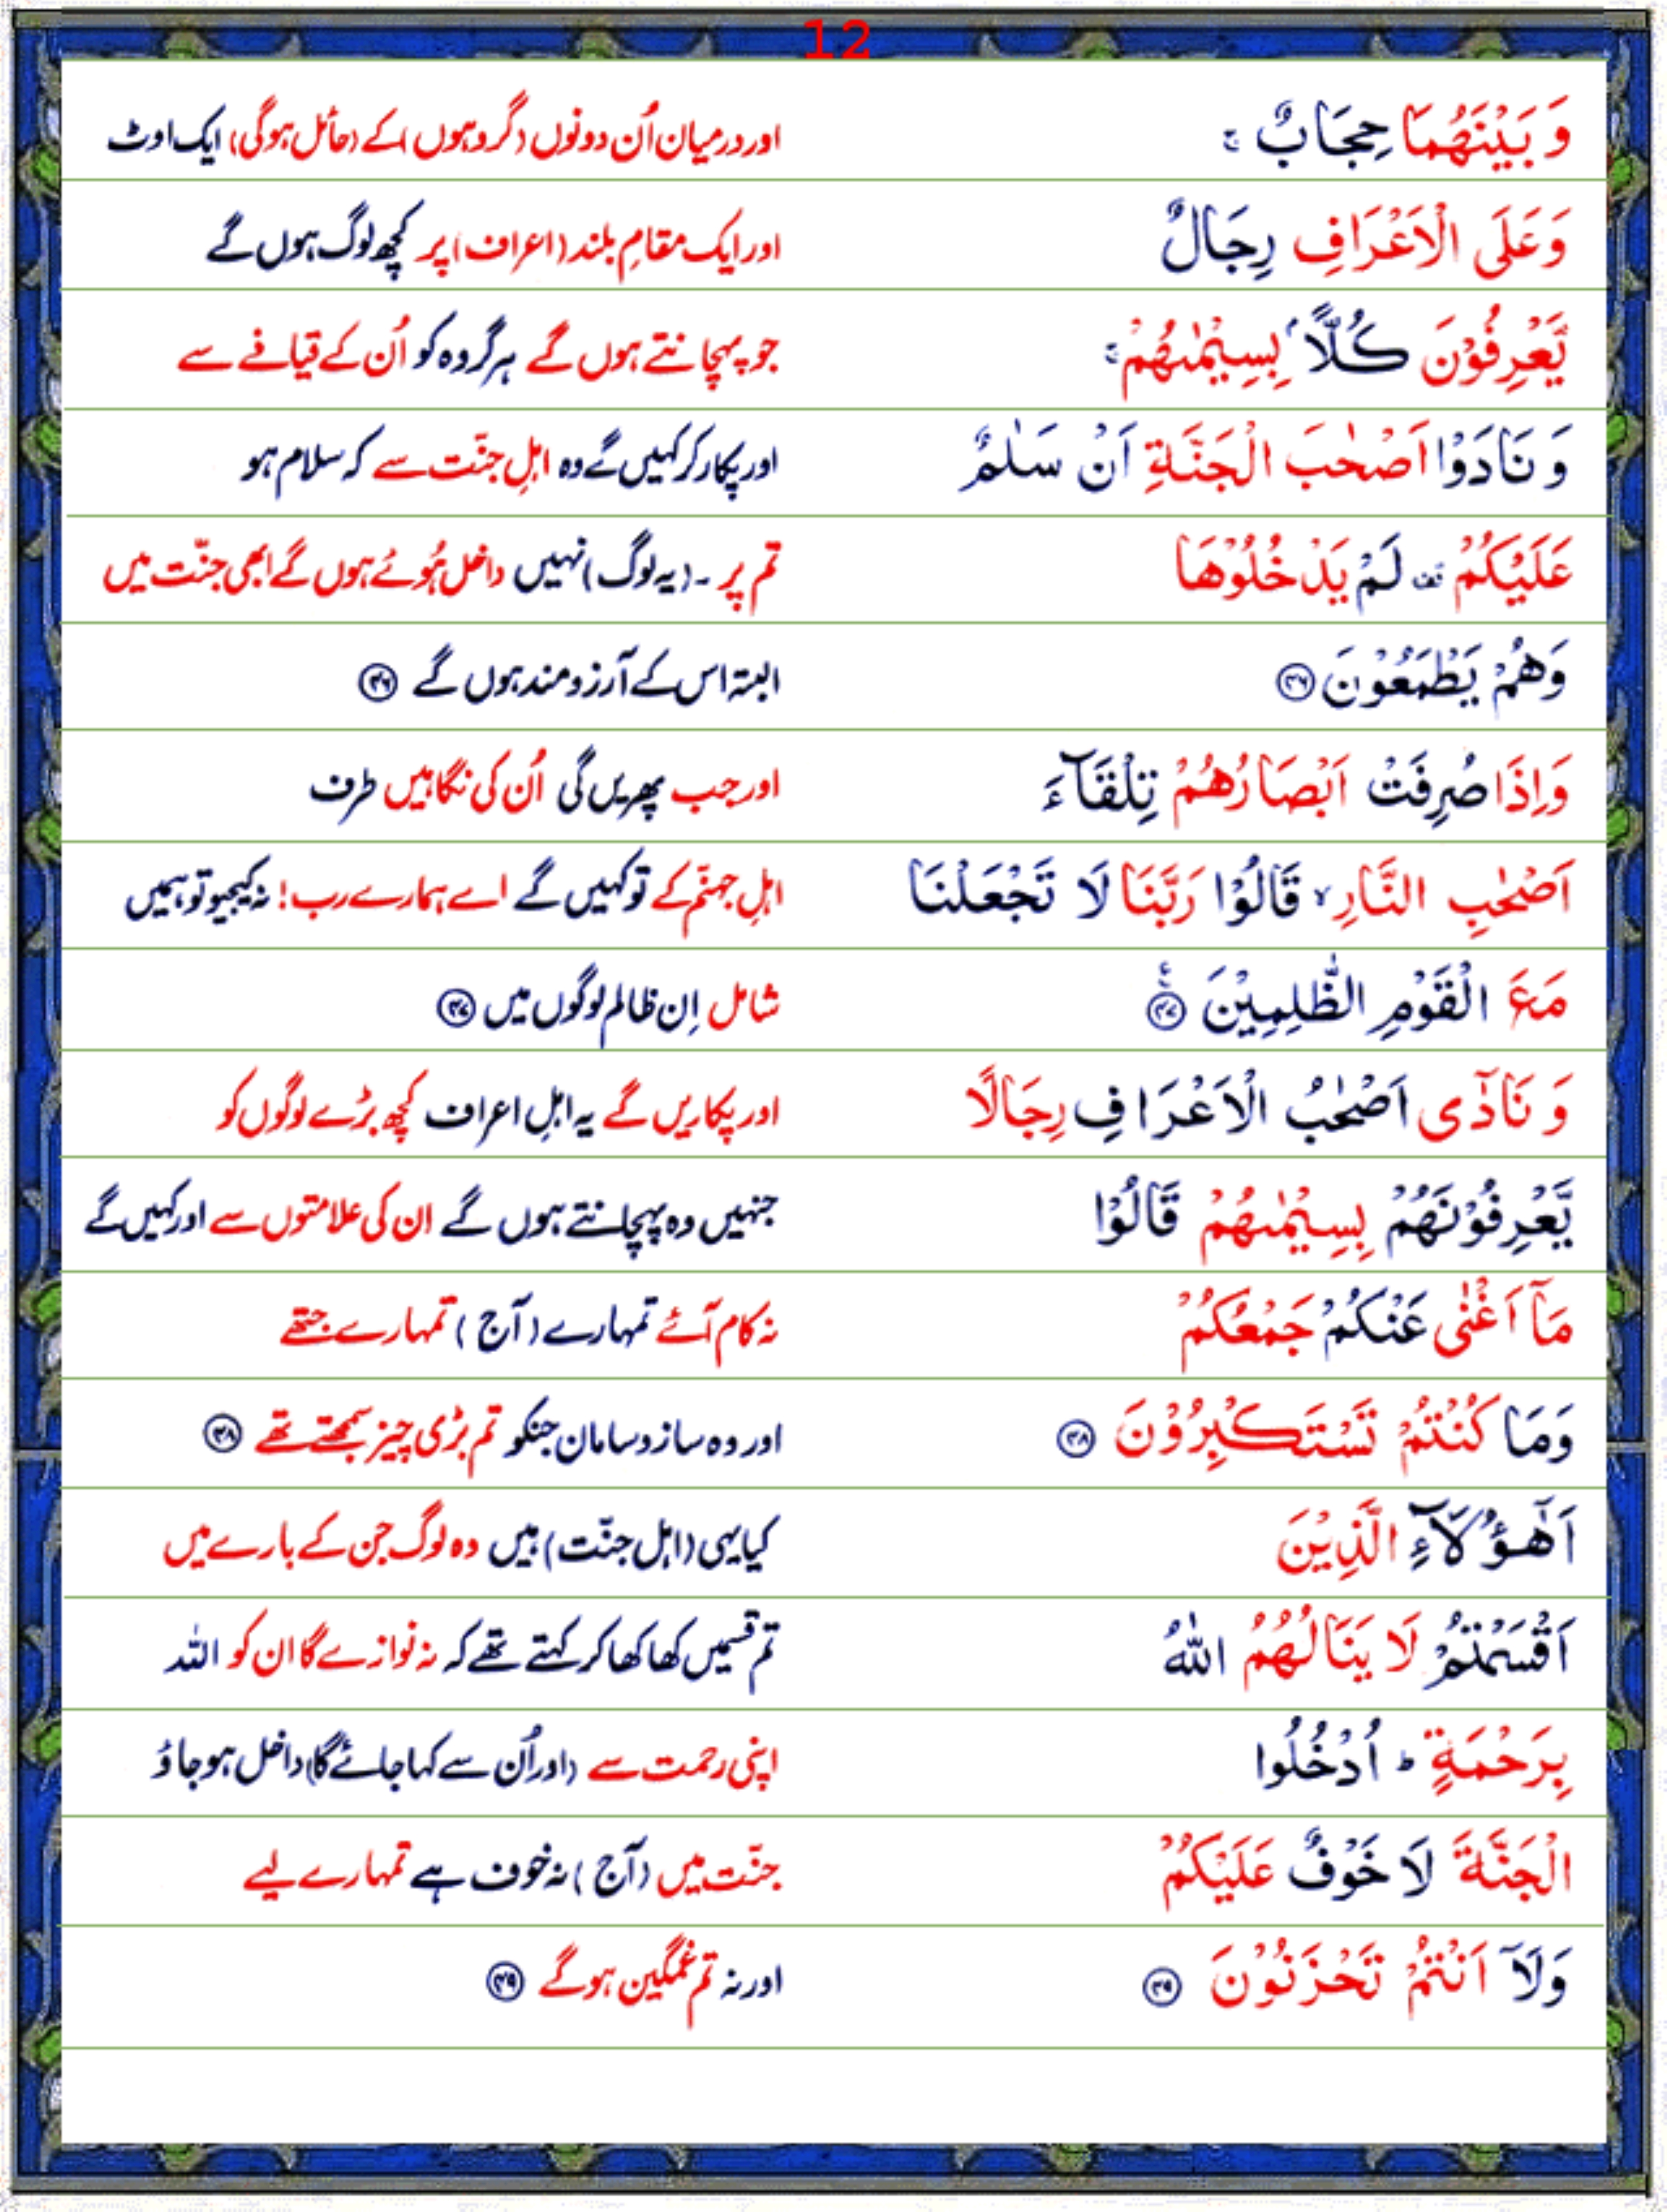 12
وَ بَيْنَهُمَا حِجَابٌ ۚ اور درمیان اُن دونوں (گروہوں) کے (حائل ہوگی) ایک اوٹ
وَعَلَى الْاَعْرَافِ رِجَالٌ اور ایک مقامِ بلند (اعراف) پر کچھ لوگ ہوں گے
يَّعْرِفُوْنَ كُلًّاۢ بِسِيْمٰىهُمْ ۚ جو پہچانتے ہوں گے ہر گروہ کو اُن کے قیافے سے
وَ نَادَوْا اَصْحٰبَ الْجَنَّةِ اَنْ سَلٰمٌ اور پکار کر کہیں گے وہ اہلِ جنّت سے کہ سلام ہو
عَلَيْكُمْ ۟ لَمْ يَدْخُلُوْهَا تم پر ۔ (یہ لوگ) نہیں داخل ہُوئے ہوں گے ابھی جنّت میں
وَهُمْ يَطْمَعُوْنَ ۴۶ البتہ اس کے آرزو مند ہوں گے ۴۶
وَاِذَا صُرِفَتْ اَبْصَارُهُمْ تِلْقَآءَ اور جب پھریں گی اُن کی نگاہیں طرف
اَصْحٰبِ النَّارِ ۙ قَالُوْا رَبَّنَا لَا تَجْعَلْنَا اہلِ جہنّم کے تو کہیں گے اے ہمارے رب! نہ کیجیو تو ہمیں
مَعَ الْقَوْمِ الظّٰلِمِيْنَ ۴۷ شامل اِن ظالم لوگوں میں ۴۷
وَ نَادٰٓى اَصْحٰبُ الْاَعْرَافِ رِجَالًا اور پکاریں گے یہ اہلِ اعراف کچھ بڑے لوگوں کو
يَّعْرِفُوْنَهُمْ بِسِيْمٰىهُمْ قَالُوْا جنہیں وہ پہچانتے ہوں گے ان کی علامتوں سے اور کہیں گے
مَآ اَغْنٰى عَنْكُمْ جَمْعُكُمْ نہ کام آئے تمہارے (آج) تمہارے جتھے
وَمَا كُنْتُمْ تَسْتَكْبِرُوْنَ ۴۸ اور وہ ساز و سامان جنکو تم بڑی چیز سمجھتے تھے ۴۸
اَهٰٓؤُلَآءِ الَّذِيْنَ کیا یہی (اہل جنّت) ہیں وہ لوگ جن کے بارے میں
اَقْسَمْتُمْ لَا يَنَالُهُمُ اللّٰهُ تم قسمیں کھا کھا کر کہتے تھے کہ نہ نوازے گا ان کو اللہ
بِرَحْمَةٍ ؕ اُدْخُلُوا اپنی رحمت سے (اور اُن سے کہا جائے گا) داخل ہو جاؤ
الْجَنَّةَ لَا خَوْفٌ عَلَيْكُمْ جنّت میں (آج) نہ خوف ہے تمہارے لیے
وَلَآ اَنْتُمْ تَحْزَنُوْنَ ۴۹ اور نہ تم غمگین ہوگے ۴۹